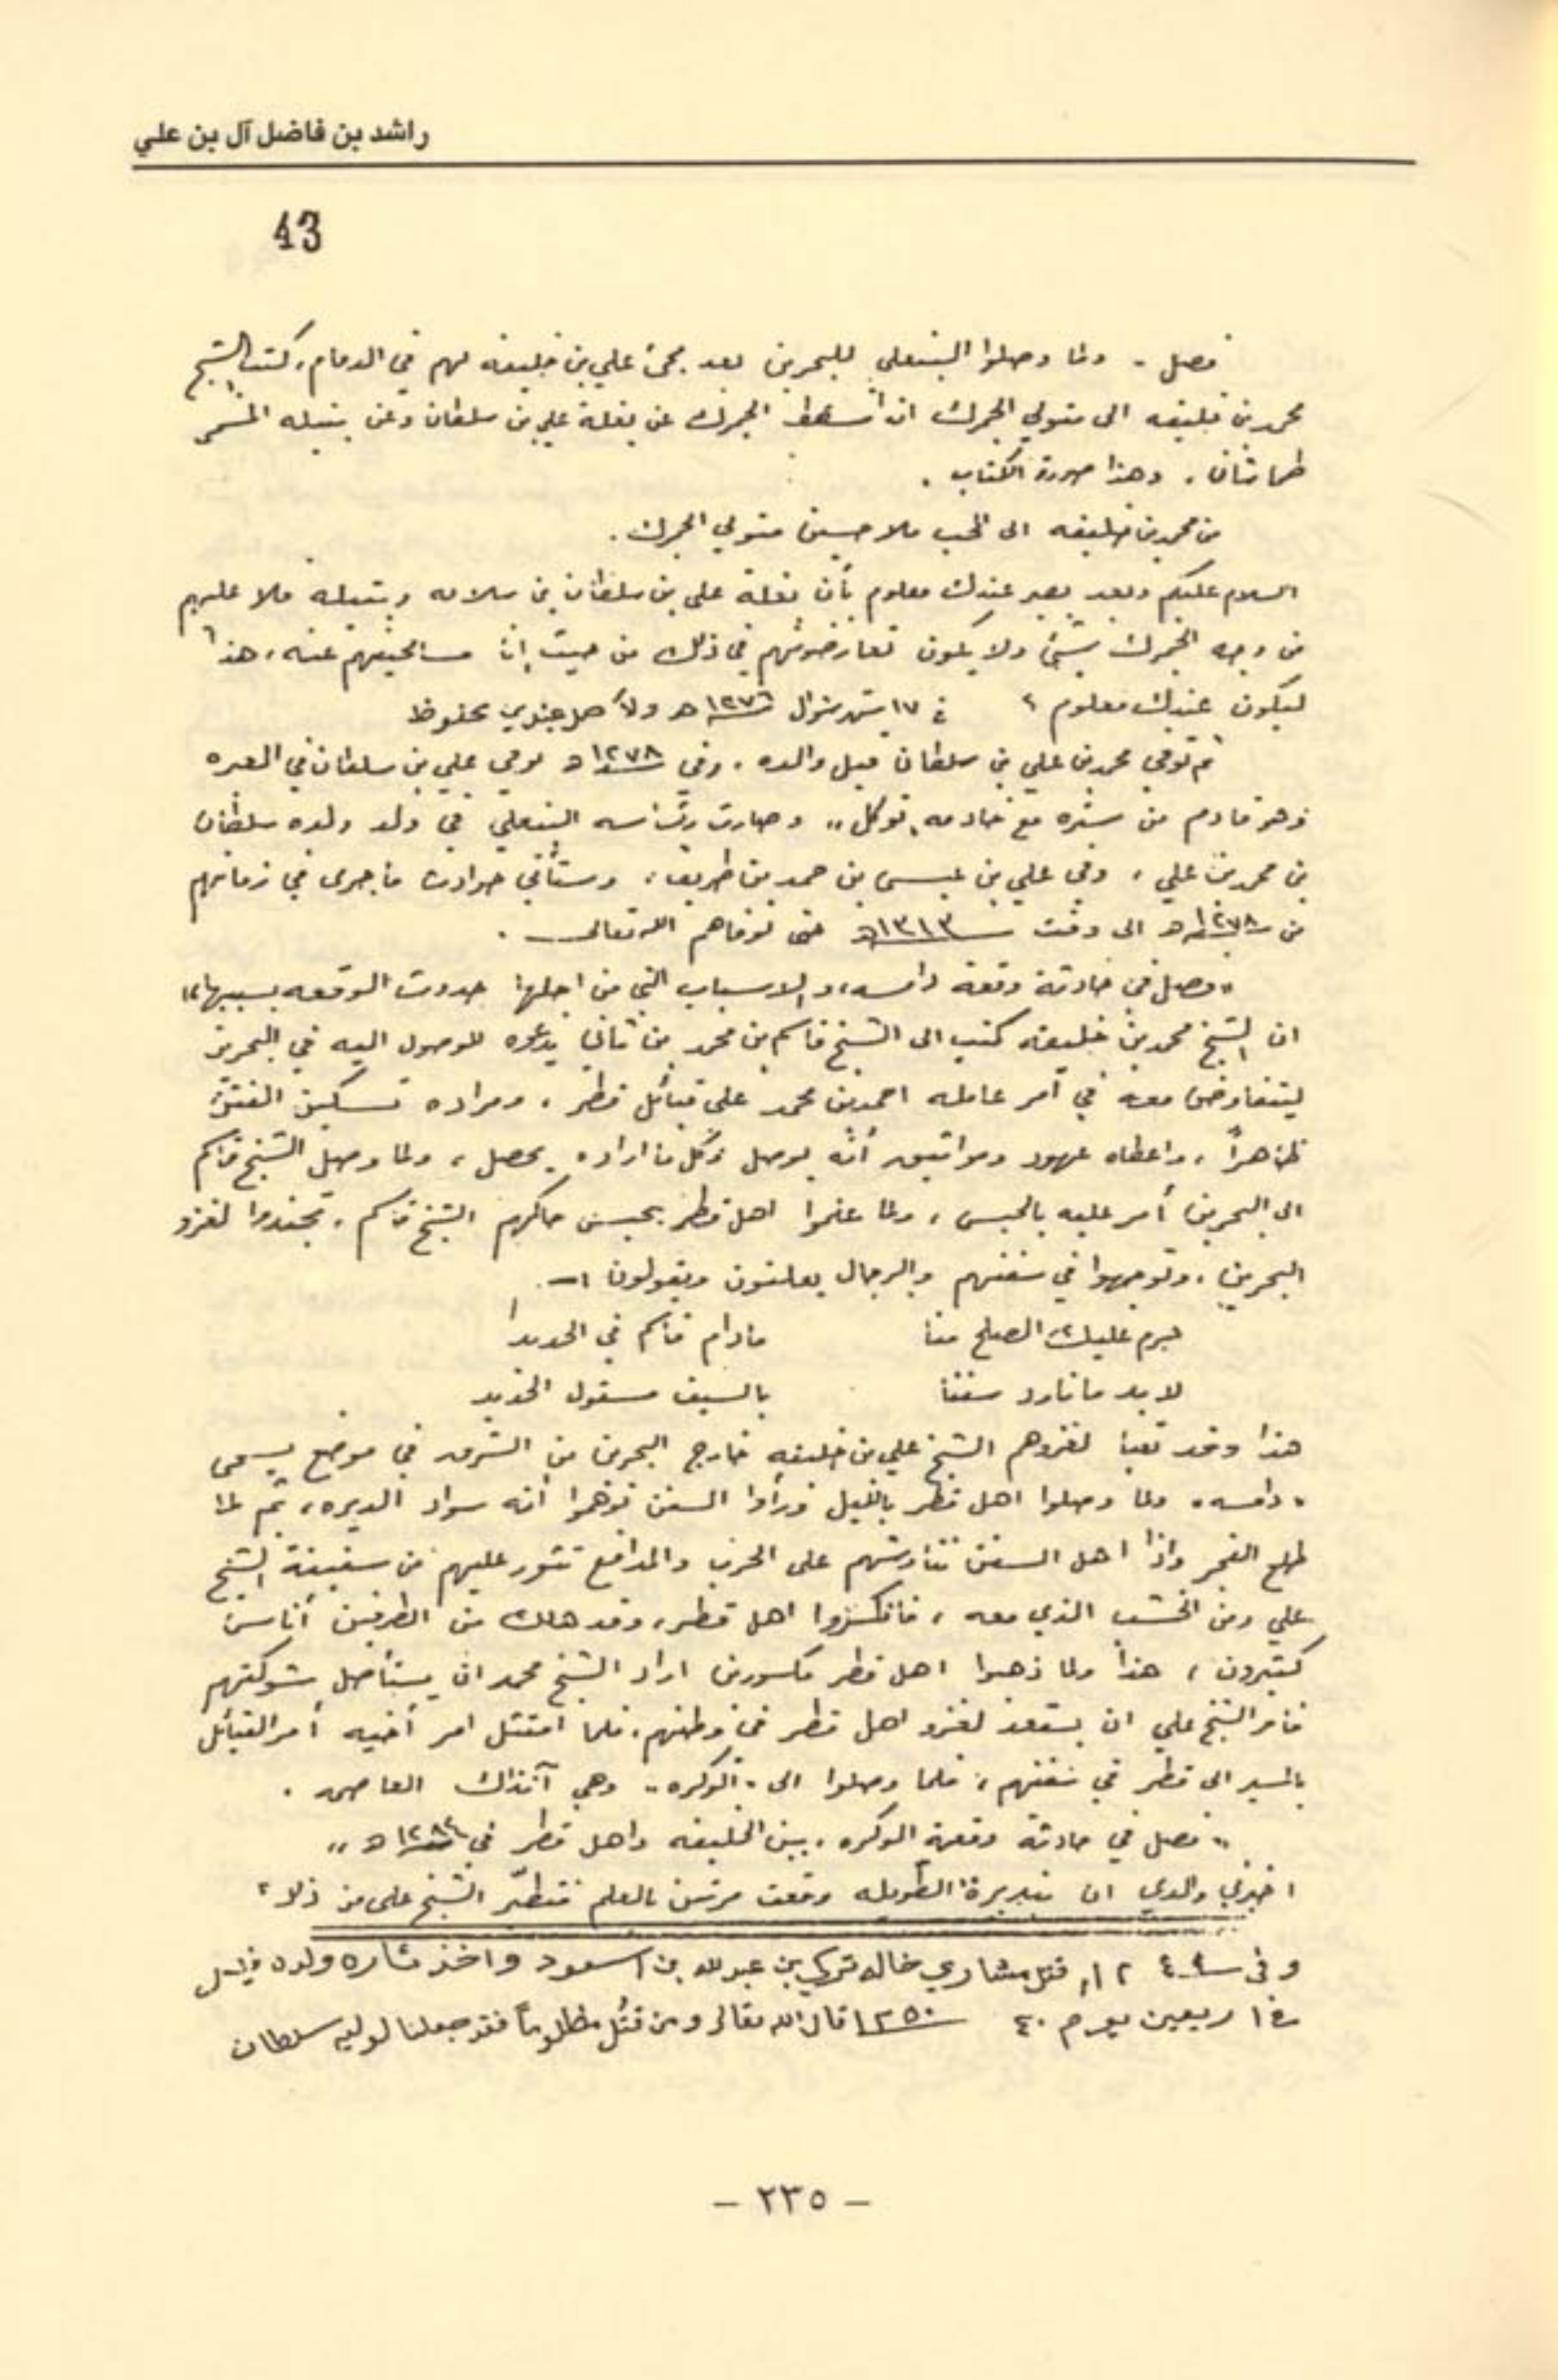 راشد بن فاضل آل بن علي
43
فصل . ولما وصلوا البنعلي للبحرين بعد مجئ علي بن خليفه لهم في الدمام، كتب الشيخ
محمد بن خليفه الى متولي الجمرك ان اسقط الجمرك عن بغلة علي بن سلطان وعن بتيله المسمى
طماشان . وهذا صورة الكتاب .
من محمد بن خليفه الى المحب ملا حسين متولي الجمرك .
السلام عليكم وبعد يصير عندك معلوم بأن بغلة علي بن سلطان بن سلامه وبتيله فلا عليهم
من وجه الجمرك شيئ ولا يكون تعارضونهم في ذلك من حيث انا مسامحينهم عنه، هذا
ليكون عندك معلوم ؟ في ١٧ شهر شوال ١٢٧٦ هـ والأصل عندي محفوظ
ثم توفي محمد بن علي بن سلطان قبل والده . وفي ١٢٧٨ هـ توفي علي بن سلطان في العبره
وهو قادم من ستره مع خادمه "توكل" وصارت رئاسه البنعلي في ولد ولده سلطان
بن محمد بن علي ، وفي علي بن عيسى بن حمد بن طريف ، وستأتي حوادث ما جرى في زمانهم
من ١٢٧٨ هـ الى وقت ١٣١٣ هـ حتى توفاهم الله تعالى .
"فصل في حادثة وقعة دامسه، والاسباب التي من اجلها حدوث الوقعه بسببها"
ان الشيخ محمد بن خليفه كتب الى الشيخ قاسم بن محمد بن ثاني يدعوه للوصول اليه في البحرين
ليتفاوض معه في أمر عامله احمد بن محمد على قبائل قطر ، ومراده تسكين الفتن
ظاهراً ، واعطاه عهود ومواثيق أنه يوصل وكل ما اراده يحصل ، ولما وصل الشيخ قاسم
الى البحرين أمر عليه بالحبس ، ولما علموا اهل قطر بحبس حاكمهم الشيخ قاسم ، تجندوا لغزو
البحرين ، وتوجهوا في سفنهم والرجال يعلنون ويقولون :-
حرم عليك الصلح منا مادام قاسم في الحديدا
لابد ما نارد سفنا بالسيف مسقول الحديد
هذا وقد تعبا لغزوهم الشيخ علي بن خليفه خارج البحرين من الشرق في موضع يسمى
"دامسه" ولما وصلوا اهل قطر بالليل ورأوا السفن توهموا أنه سواد الديره ، ثم لما
طلع الفجر واذا اهل السفن تناوشهم على الحرب والمدافع تثور عليهم من سفينة الشيخ
علي ومن الخشب الذي معه ، فانكسروا اهل قطر ، وقد هلك من الطرفين أناس
كثيرون ، هذا ولما ذهبوا اهل قطر مكسورين اراد الشيخ محمد ان يستأصل شوكتهم
فأمر الشيخ علي ان يستعد لغزو اهل قطر في وطنهم . فلما امتثل امر أخيه أمر القبائل
بالمسير الى قطر في سفنهم ، فلما وصلوا الى "الوكره" وهي آنذاك العاصمه .
"فصل في حادثة وقعة الوكره . بين الخليفه واهل قطر في ١٢٨٤ هـ"
اخبرني والدي ان بنديرة الطويله وقعت مرتين بالعلم فتطيّر الشيخ علي من ذلك
وفي ١٢٤٩ قتل مشاري خاله تركي بن عبدالله بن اسعود واخذ ثاره ولده فيصل
في اربعين يوم ٤٠ ١٢٥٠ قال الله تعالى ومن قُتل مظلوماً فقد جعلنا لوليه سلطان
- ٢٣٥ -